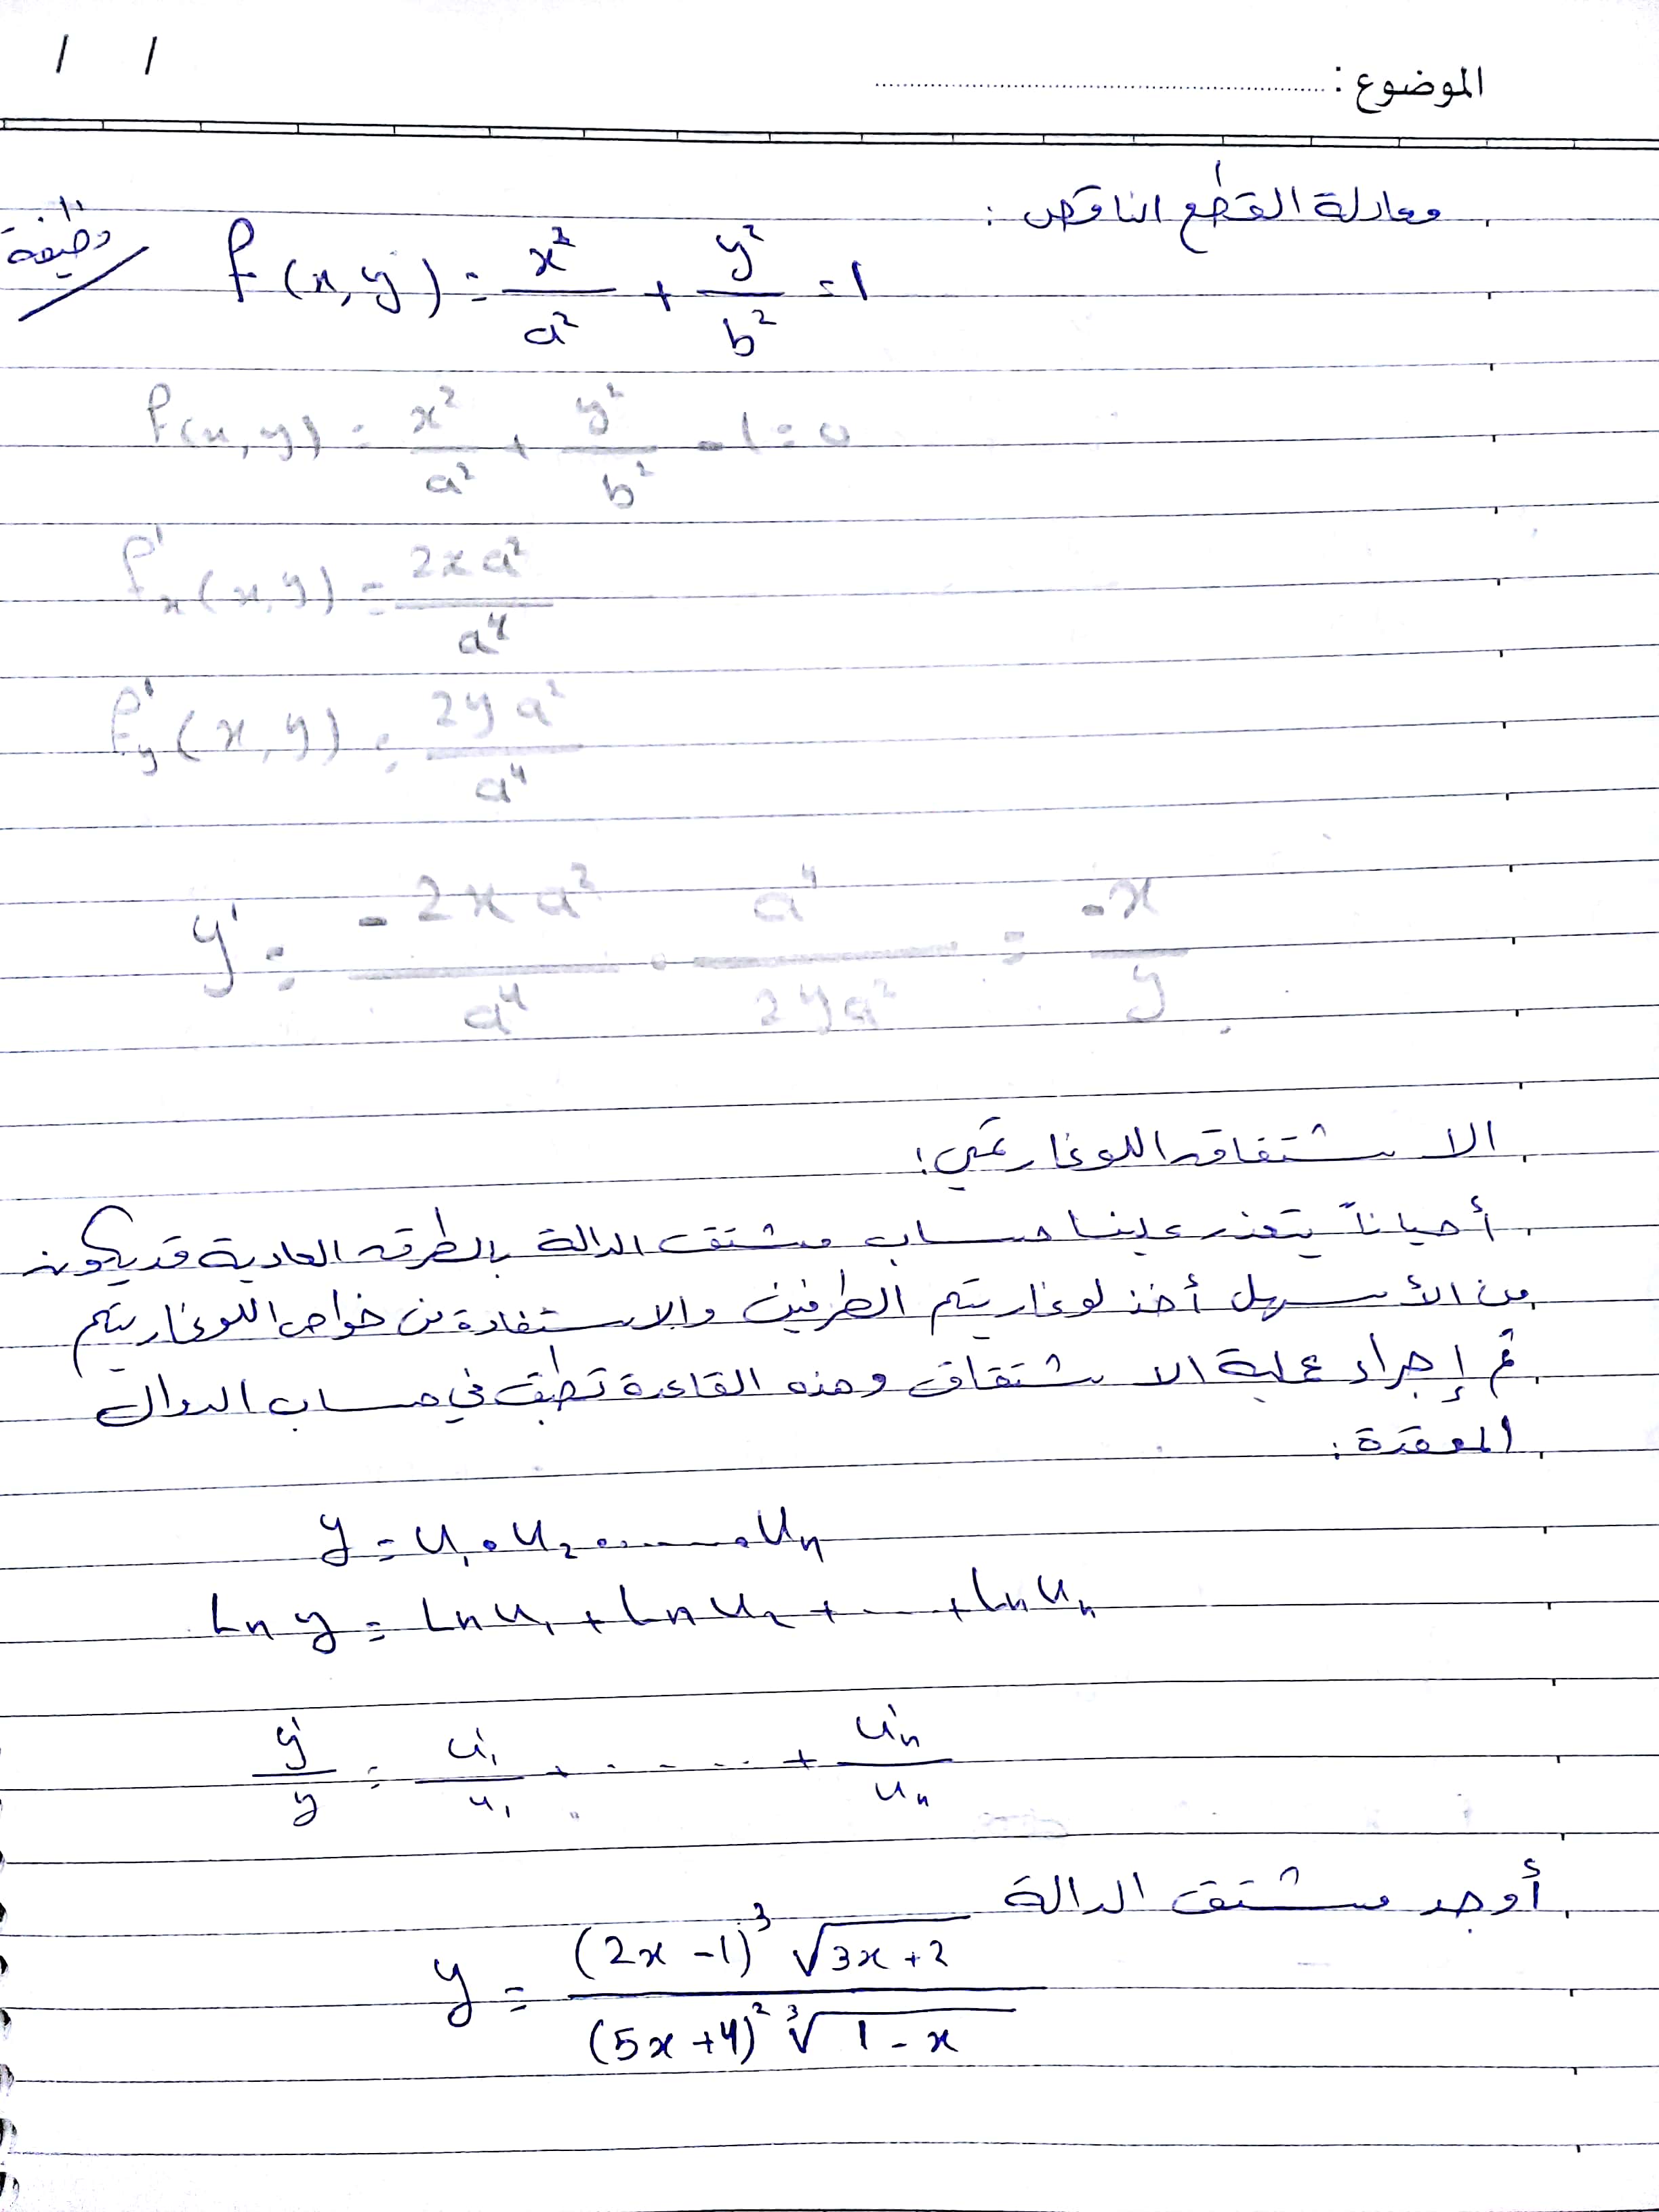 / /
الموضوع :
معادلة القطع الناقص :
وظيفة
f(x,y) = x²/a² + y²/b² = 1
f(x,y) = x²/a² + y²/b² - 1 = 0
f'x(x,y) = 2xa²/a⁴
f'y(x,y) = 2ya²/a⁴
y' = -2xa²/a⁴ · a⁴/2ya² = -x/y
الاشتقاق اللوغاريتمي :
أحياناً يتعذر علينا حساب مشتق الدالة بالطرق العادية قد يكون
من الأسهل أخذ لوغاريتم الطرفين والاستفادة من خواص اللوغاريتم
ثم إجراء عملية الاشتقاق وهذه القاعدة تطبق في حساب الدوال
المعقدة :
y = u₁ · u₂ · ...... · uₙ
Ln y = Ln u₁ + Ln u₂ + ... + Ln uₙ
y'/y = u'₁/u₁ + ..... + u'ₙ/uₙ
أوجد مشتق الدالة
y = (2x - 1)³ √(3x + 2) / (5x + 4)² ³√(1 - x)